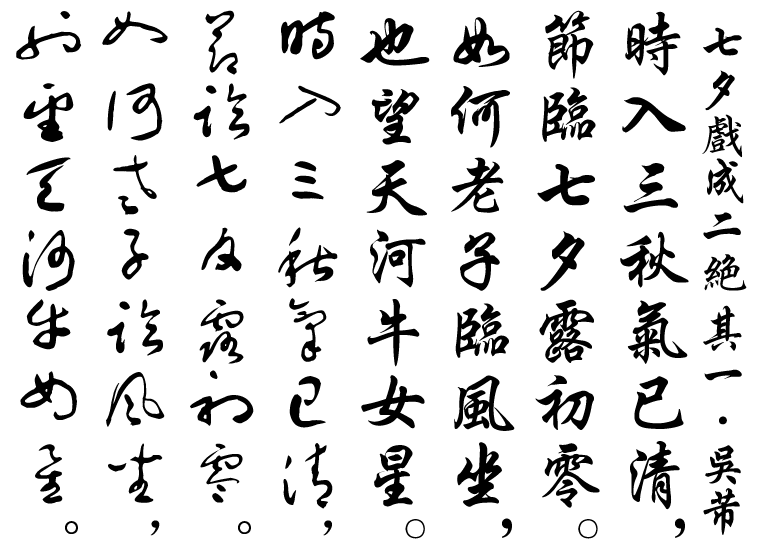 七夕戲成二絕其一·吳芾
時入三秋氣已清，
節臨七夕露初零。
如何老子臨風坐，
也望天河牛女星。
時入三秋氣已清，
節臨七夕露初零。
如何老子臨風坐，
也望天河牛女星。